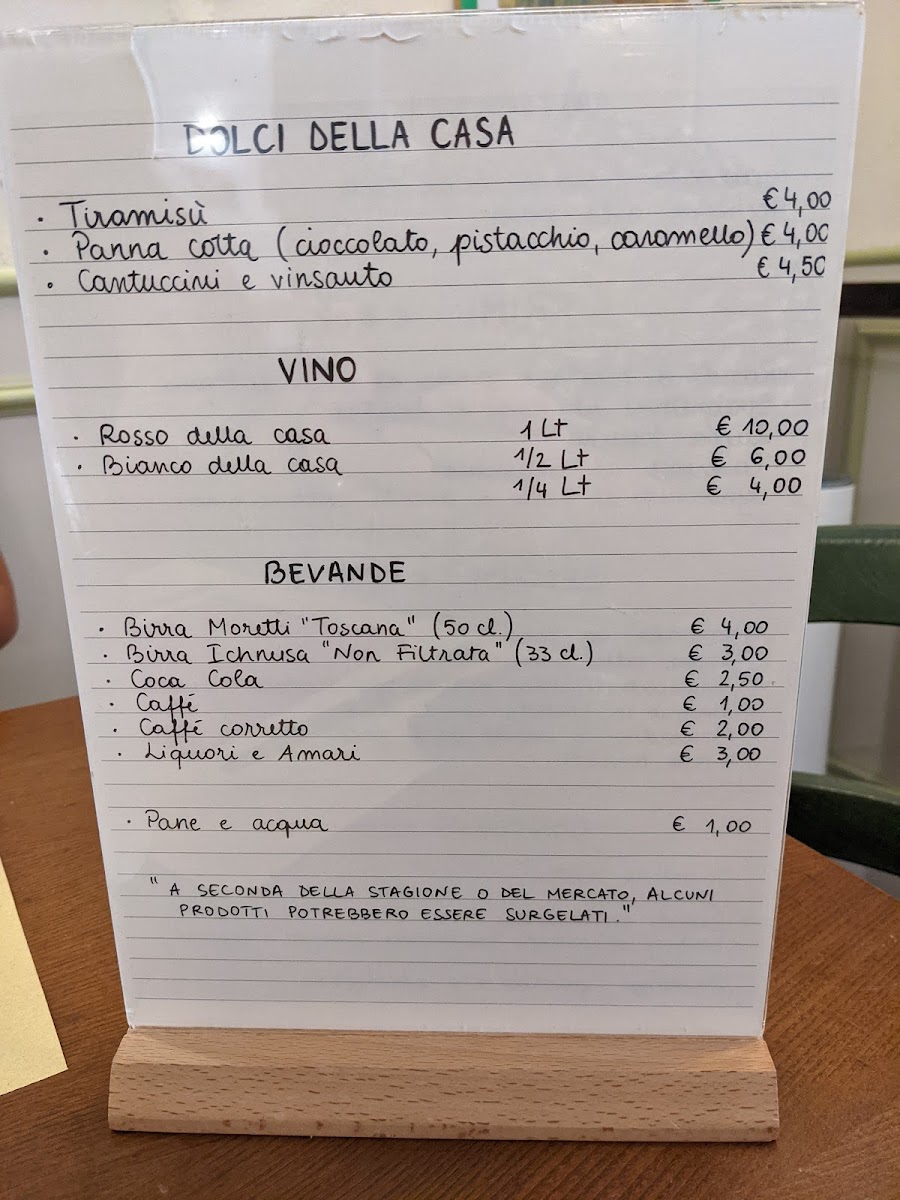 DOLCI DELLA CASA
· Tiramisù €4,00
· Panna cotta (cioccolato, pistacchio, caramello) € 4,00
· Cantuccini e vinsanto € 4,50
VINO
· Rosso della casa 1 Lt € 10,00
· Bianco della casa 1/2 Lt € 6,00
1/4 Lt € 4,00
BEVANDE
· Birra Moretti "Toscana" (50 cl.) € 4,00
· Birra Ichnusa "Non Filtrata" (33 cl.) € 3,00
· Coca Cola € 2,50
· Caffé € 1,00
· Caffé corretto € 2,00
· Liquori e Amari € 3,00
· Pane e acqua € 1,00
"A SECONDA DELLA STAGIONE O DEL MERCATO, ALCUNI
PRODOTTI POTREBBERO ESSERE SURGELATI."